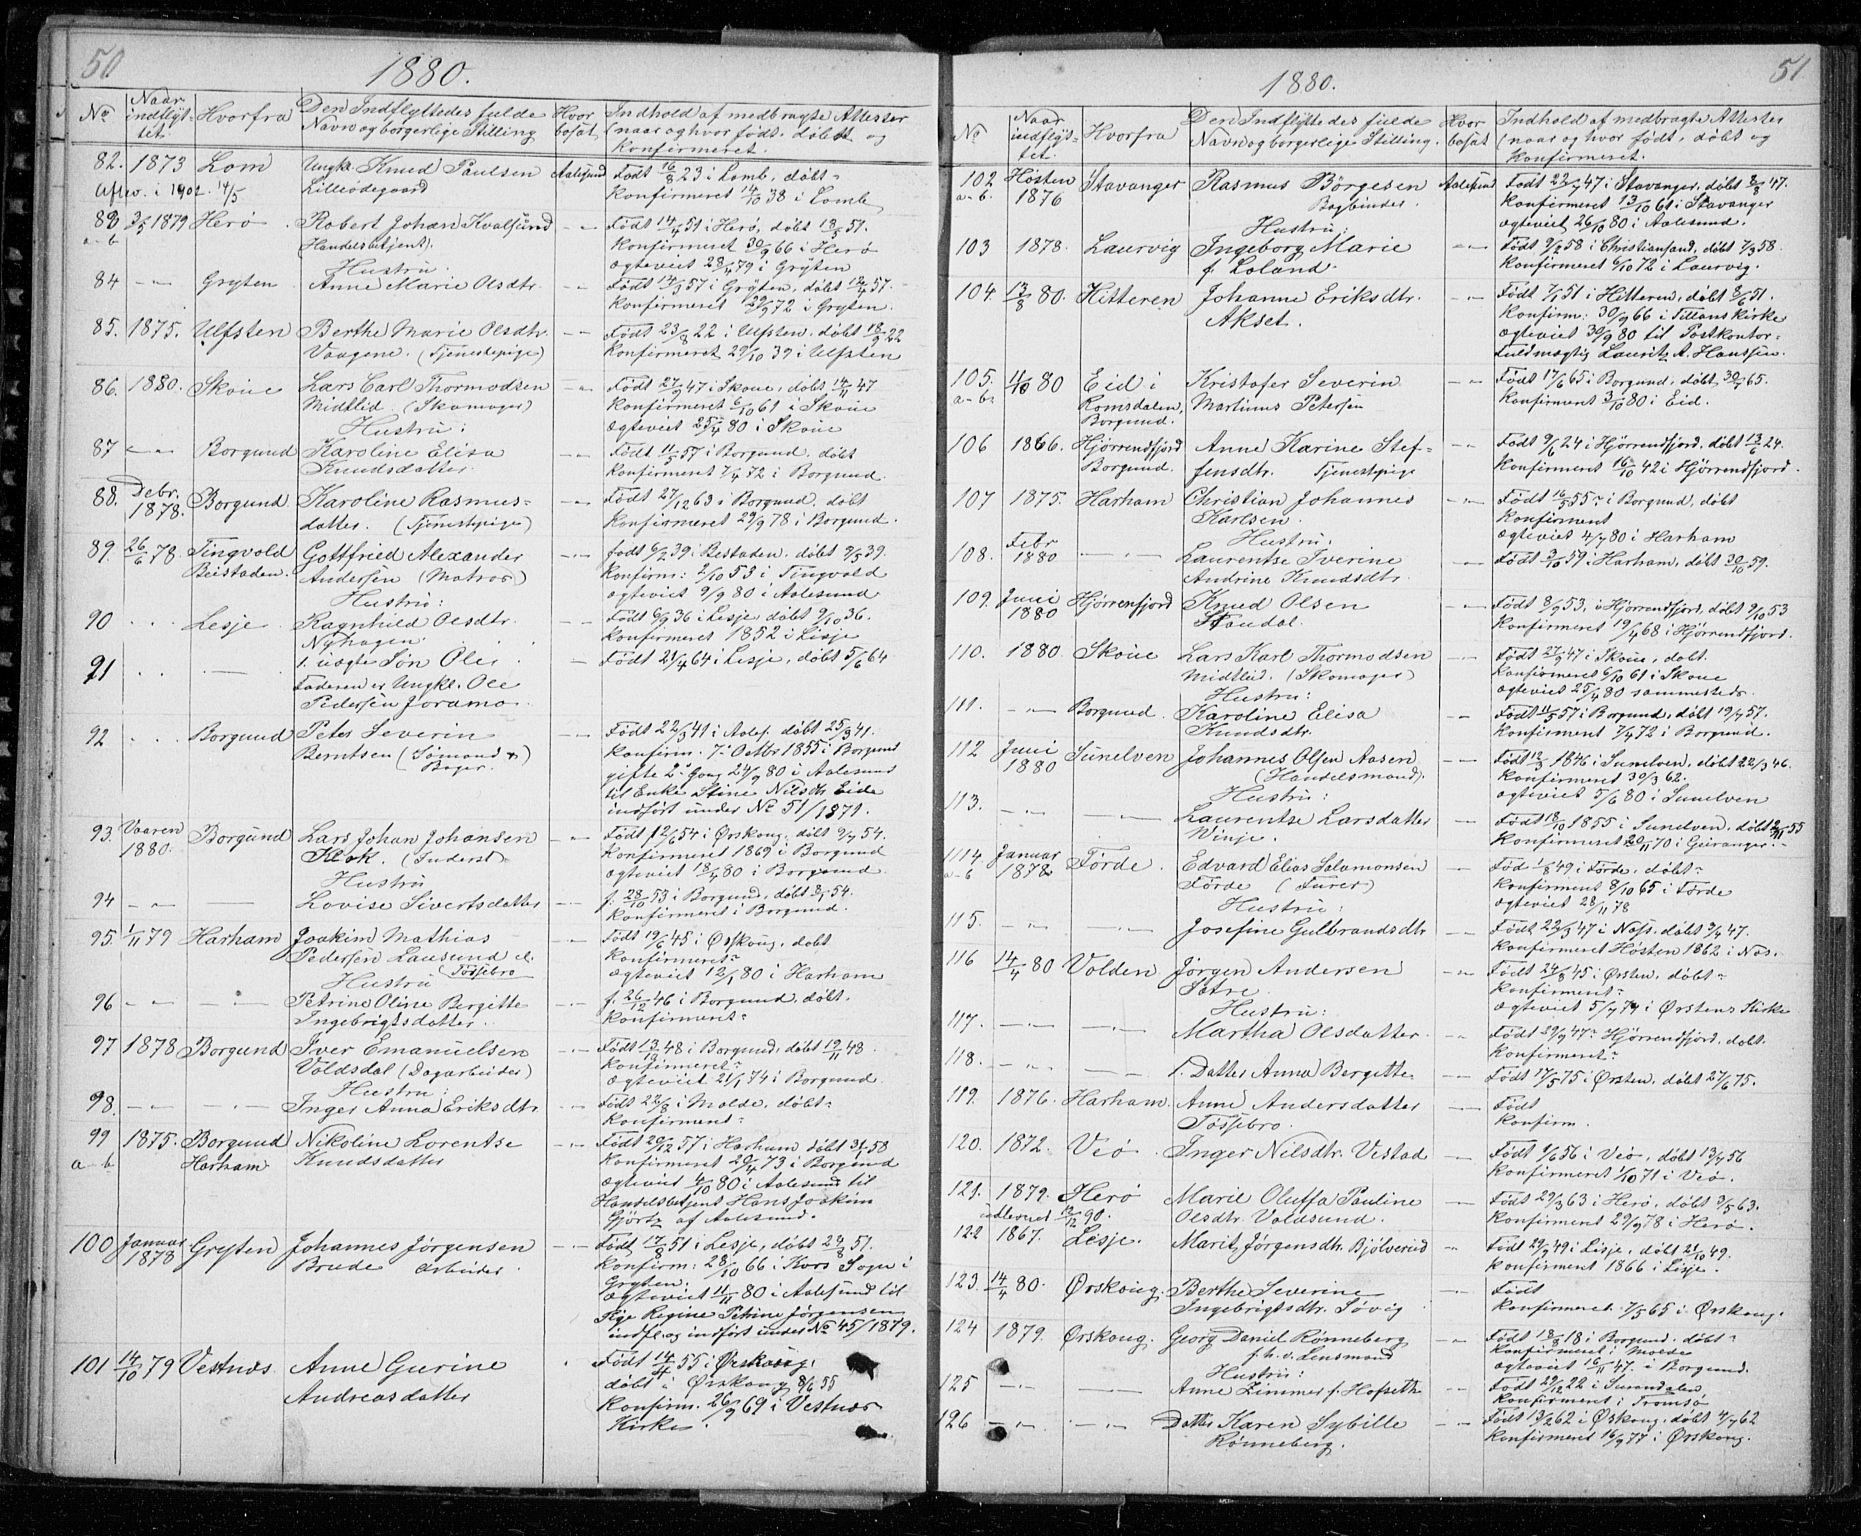 50
1880.
No
Naar indflyttet.
Hvorfra
Den Indflyttedes fulde Navn og borgerlige Stilling
Hvor bosat.
Indhold af medbragte Attester (naar og hvor født, døbt og konfirmeret.
82. 1873 Lom Ungkl. Knud Paulsen Aalesund Født 16/8 23 i Lomb, døbt-
1902 14/5 Lilleødegaard konfirmeret 14/10 38 i Lomb
83 3/5 1879 Herø Robert Johan Kvalsund -„- Født 14/4 51 i Herø, døbt 18/5 51.
a-b Handelsbetjent). konfirmeret 30/9 66 i Herø
Hustru: ægteviet 28/4 79 i Gryten
84 -„- Gryten Anne Marie Olsdtr. -„- Født 14/3 57 i Gryten, døbt 12/4 57.
konfirmeret 29/9 72 i Gryten.
85. 1875. Ulfsten Berthe Marie Olsdtr. -„- Født 23/8 22 i Ulfsten. døbt 18/9 22
Vaagene. (Tjenestepige) konfirmeret 29/10 39 i Ulfsten
86. 1880. Skoue Lars Carl Thormodsen -„- Født 27/9 47 i Skoue, døbt 14/11 47
Midtlid (Skomager) konfirmeret 6/10 61 i Skoue
Hustru: ægteviet 25/4 80 i Skoue
87 -„- Borgund Karoline Elisa -„- Født 11/5 57 i Borgund. døbt
Knudsdatter konfirmeret 7/4 72 i Borgund.
88. Debr. 1878. Borgund Karoline Rasmus- -„- Født 27/12 63 i Borgund, døbt
datter. (Tjenestepige) konfirmeret 29/9 78 i Borgund.
89. 26/6 78. Tingvold Gottfried Alexander -„- født 6/2 39 i Bestaden. døbt 9/5 39.
Beistaden. Andersen (Matros) konfirm: 2/10 53 i Tingvold
Hustru: ægteviet 9/9 80 i Aalesund
90 Lesje Ragnhild Olsdtr. - Født 6/9 36 i Lesje, døbt 9/10 36.
Nyhagen. konfirmeret 1852 i Lisje
91 1. uægte Søn Ole - Født 21/4 64 i Lisje, døbt 5/6 64
Faderen er Ungkl. Ole
Pedersen Joramo.
92 Borgund Peter Severin Født 22/3 41 i Aalesf. døbt 25/3 41.
Berntsen (Sømand & konfirm. 7. Octbr 1855 i Borgund
Bager. gifte 2. Gang 24/9 80 i Aalesund
til Enke Stine Nilsdtr Eide
indført under No 51/1871.
93. Vaaren 1880. Borgund Lars Johan Johansen -„- Født 12/6 54 i Ørskoug, døbt 9/7 54.
Kok. (Inderst). konfirmeret 1869 i Borgund
Hustru ægteviet 18/4 80 i Borgund.
94 -„- Lovise Sivertsdatter -„- f. 28/10 53 i Borgund, døbt 8/1 54.
konfirmeret i Borgund.
95. 1/11 79 Harham Joakim Mathias -„- Født 19/6 45 i Ørskoug, døbt
Pedersen Lausund el. konfirmeret-
Tossebro
Hustru ægteviet 12/1 80 i Harham
96 -„- Petrine Oline Bergitte -„- f. 26/12 46 i Borgund, døbt.
Ingebrigtsdatter. konfirmeret-
97 1878 Borgund Iver Emanuelsen -„- Født 13/10 48 i Borgund, døbt 19/11 48.
Voldsdal (Dagarbeider) konfirmeret-
Hustru: ægteviet 21/1 74 i Borgund
98. -„- Inger Anna Eriksdtr. -„- Født 22/8 i Molde, døbt-
konfirmeret-
99 1875. Borgund Nikoline Lorentse -„- Født 20/12 57 i Harham, døbt 31/1 58
a-b Harham Knudsdatter konfirmeret 20/4 73 i Borgund
ægteviet 4/10 80 i Aalesund til
Handelsbetjent Hans Joakim
Gjørtz af Aalesund.
100 Januar 1878 Gryten Johannes Jørgensen -„- Født 17/8 51 i Lesje, døbt 24/8 51.
Brude Arbeider. konfirm: 28/10 66 i Kors Sogn i
Gryten.
ægteviet 11/11 80 i Aalesund til
Pige Regine Petrine Jørgensen
indfl. og indført under No 45/1879.
101 14/10 79 Vestnæs Anne Gurine Født 14/4 55 i Ørskoug,
Andreasdatter døbt i Ørskoug 8/6 55
konfirm. 26/9 69 i Vestnæs
Kirke.
51
1880.
No
Naar indflyttet.
Hvorfra
Den Indflyttedes fulde Navn og borgerlige Stilling.
Hvor bosat
Indhold af medbragte Attester (naar og hvor født, døbt og konfirmeret.
102 Høsten 1876 Stavanger Rasmus Børgesen Aalesund Født 22/7 47 i Stavanger, døbt 8/8 47.
a-b. Bogbinder. konfirmeret 13/10 61 i Stavanger
Hustru: ægteviet 26/10 80 i Aalesund.
103 1878. Laurvig Ingeborg Marie -„- Født 9/2 58 i Christiansand, døbt 7/3 58.
f. Loland. konfirmeret 6/10 72 i Laurvig.
104. 13/8 80. Hitteren Johanne Eriksdtr. -„- Født 7/1 51 i Hitteren, døbt 8/6 51.
Akset. konfirm: 30/9 66 i Fillans Kirke
ægteviet 30/9 80 til Postkontor-
fuldmægtig Lauritz A. Hanssen.
105. 11/10 80 Eid i Kristofer Severin -„- Født 17/6 65 i Borgund, døbt 30/7 65.
a-b. Romsdalen, Martinus Petersen konfirmeret 3/10 80 i Eid.
Borgund.
106 1866. Hjørrendfjord Anne Karine Stef- -„- Født 9/6 24 i Hjørrendfjord, døbt 13/6 24.
Borgund. fensdtr. Tjenestepige konfirmeret 16/10 42 i Hjørrendfjord.
107 1875. Harham Christian Johannes -„- Født 16/5 55 i Borgund, døbt
Karlsen. konfirmeret
Hustru: ægteviet 4/7 80 i Harham
108. Febr 1880 Laurentse Iverine -„- Født 3/10 59 i Harham, døbt 30/10 59.
Andrine Knudsdtr.
109. Juni 1880 Hjørrenfjord Knud Olsen -„- Født 8/9 53, i Hjørrendfjord, døbt 9/10 53
Standal. konfirmeret 19/4 68 i Hjørrendfjord.
110. 1880. Skoue Lars Karl Thormodsen -„- Født 27/9 47 i Skoue, døbt.
Midtlid. (Skomager) konfirmeret 6/10 61 i Skoue
Hustru: ægteviet 25/4 80 sammesteds.
111. -„- Borgund. Karoline Elisa -„- Født 11/5 57 i Borgund, døbt 19/7 57.
Knudsdtr. konfirmeret 7/4 72 i Borgund.
112 Juni 1880 Sunelven Johannes Olsen Aasen -„- Født 12/3 1846 i Sunelven, døbt 22/3 46.
(Handelsmand). konfirmeret 30/3 62.
Hustru: ægteviet 5/6 80 i Sunelven
113. -„- Laurentse Larsdatter -„- Født 18/10 1855 i Sunelven, døbt 2/11 55
Vinje. konfirmeret 20/11 70 i Geiranger.
114 Januar 1878 Førde. Edvard Elias Salamonsen -„- Fød 1/8 49 i Førde, døbt-
a-b Førde (Furer) konfirmeret 8/10 65 i Førde
Hustru: ægteviet 28/11 78
115. -„- Josefine Gulbrandsdtr -„- Født 22/3 47 i Næss. døbt 3/4 47.
konfirmeret Høsten 1862 i Nes.
116 14/4 80 Volden Jørgen Andersen -„- Født 24/8 45 i Ørsten, døbt-
Sætre. konfirmeret-
Hustru: ægteviet 5/7 74 i Ørstens Kirke
117. -„- Martha Olsdatter. -„- Født 29/9 47 i Hjørrendfjord. døbt.
konfirmeret-
118. -„- 1. Datter Anna Bergitte -„- Født 17/5 75 i Ørsten, døbt 27/6 75.
119. 1876. Harham Anne Andersdatter -„- Født
Tossebro. konfirm.
120. 1872. Veø Inger Nilsdtr. Vestad -„- Født 9/6 56 i Veø, døbt 13/7 56
konfirmeret 1/10 71 i Veø.
121. 1879. Herø Marie Oluffa Pauline -„- Født 29/3 63 i Herø, døbt 3/5 63.
12/12 90. Olsdtr. Voldsund. konfirmeret 29/9 78 i Herø.
122 1867. Lesje. Marit Jørgensdtr. Bjølverud -„- Født 29/9 49 i Lisje, døbt 21/10 49.
konfirmeret 1866 i Lisje.
123. 14/4 80. Ørskoug. Berthe Severine -„- Født
Ingebrigtsdtr. Søvig konfirmeret. 7/5 65 i Ørskoug.
124 1879. Ørskoug. Georg Daniel Rønneberg -„- Født 18/8 18 i Borgund. døbt-
f. h. v. Lensmand konfirmeret i Molde
Hustru: ægteviet 16/11 47. i Borgund.
125 -„- Anne Zimmer f. Hofseth -„- Født 29/12 22 i Surendalen
konfirmeret i Tromsø
126 -„- Datter Karen Sybille -„- Født 13/2 62 i Ørskoug, døbt 4/7 62
Rønneberg. konfirmeret 16/9 77 i Ørskoug.